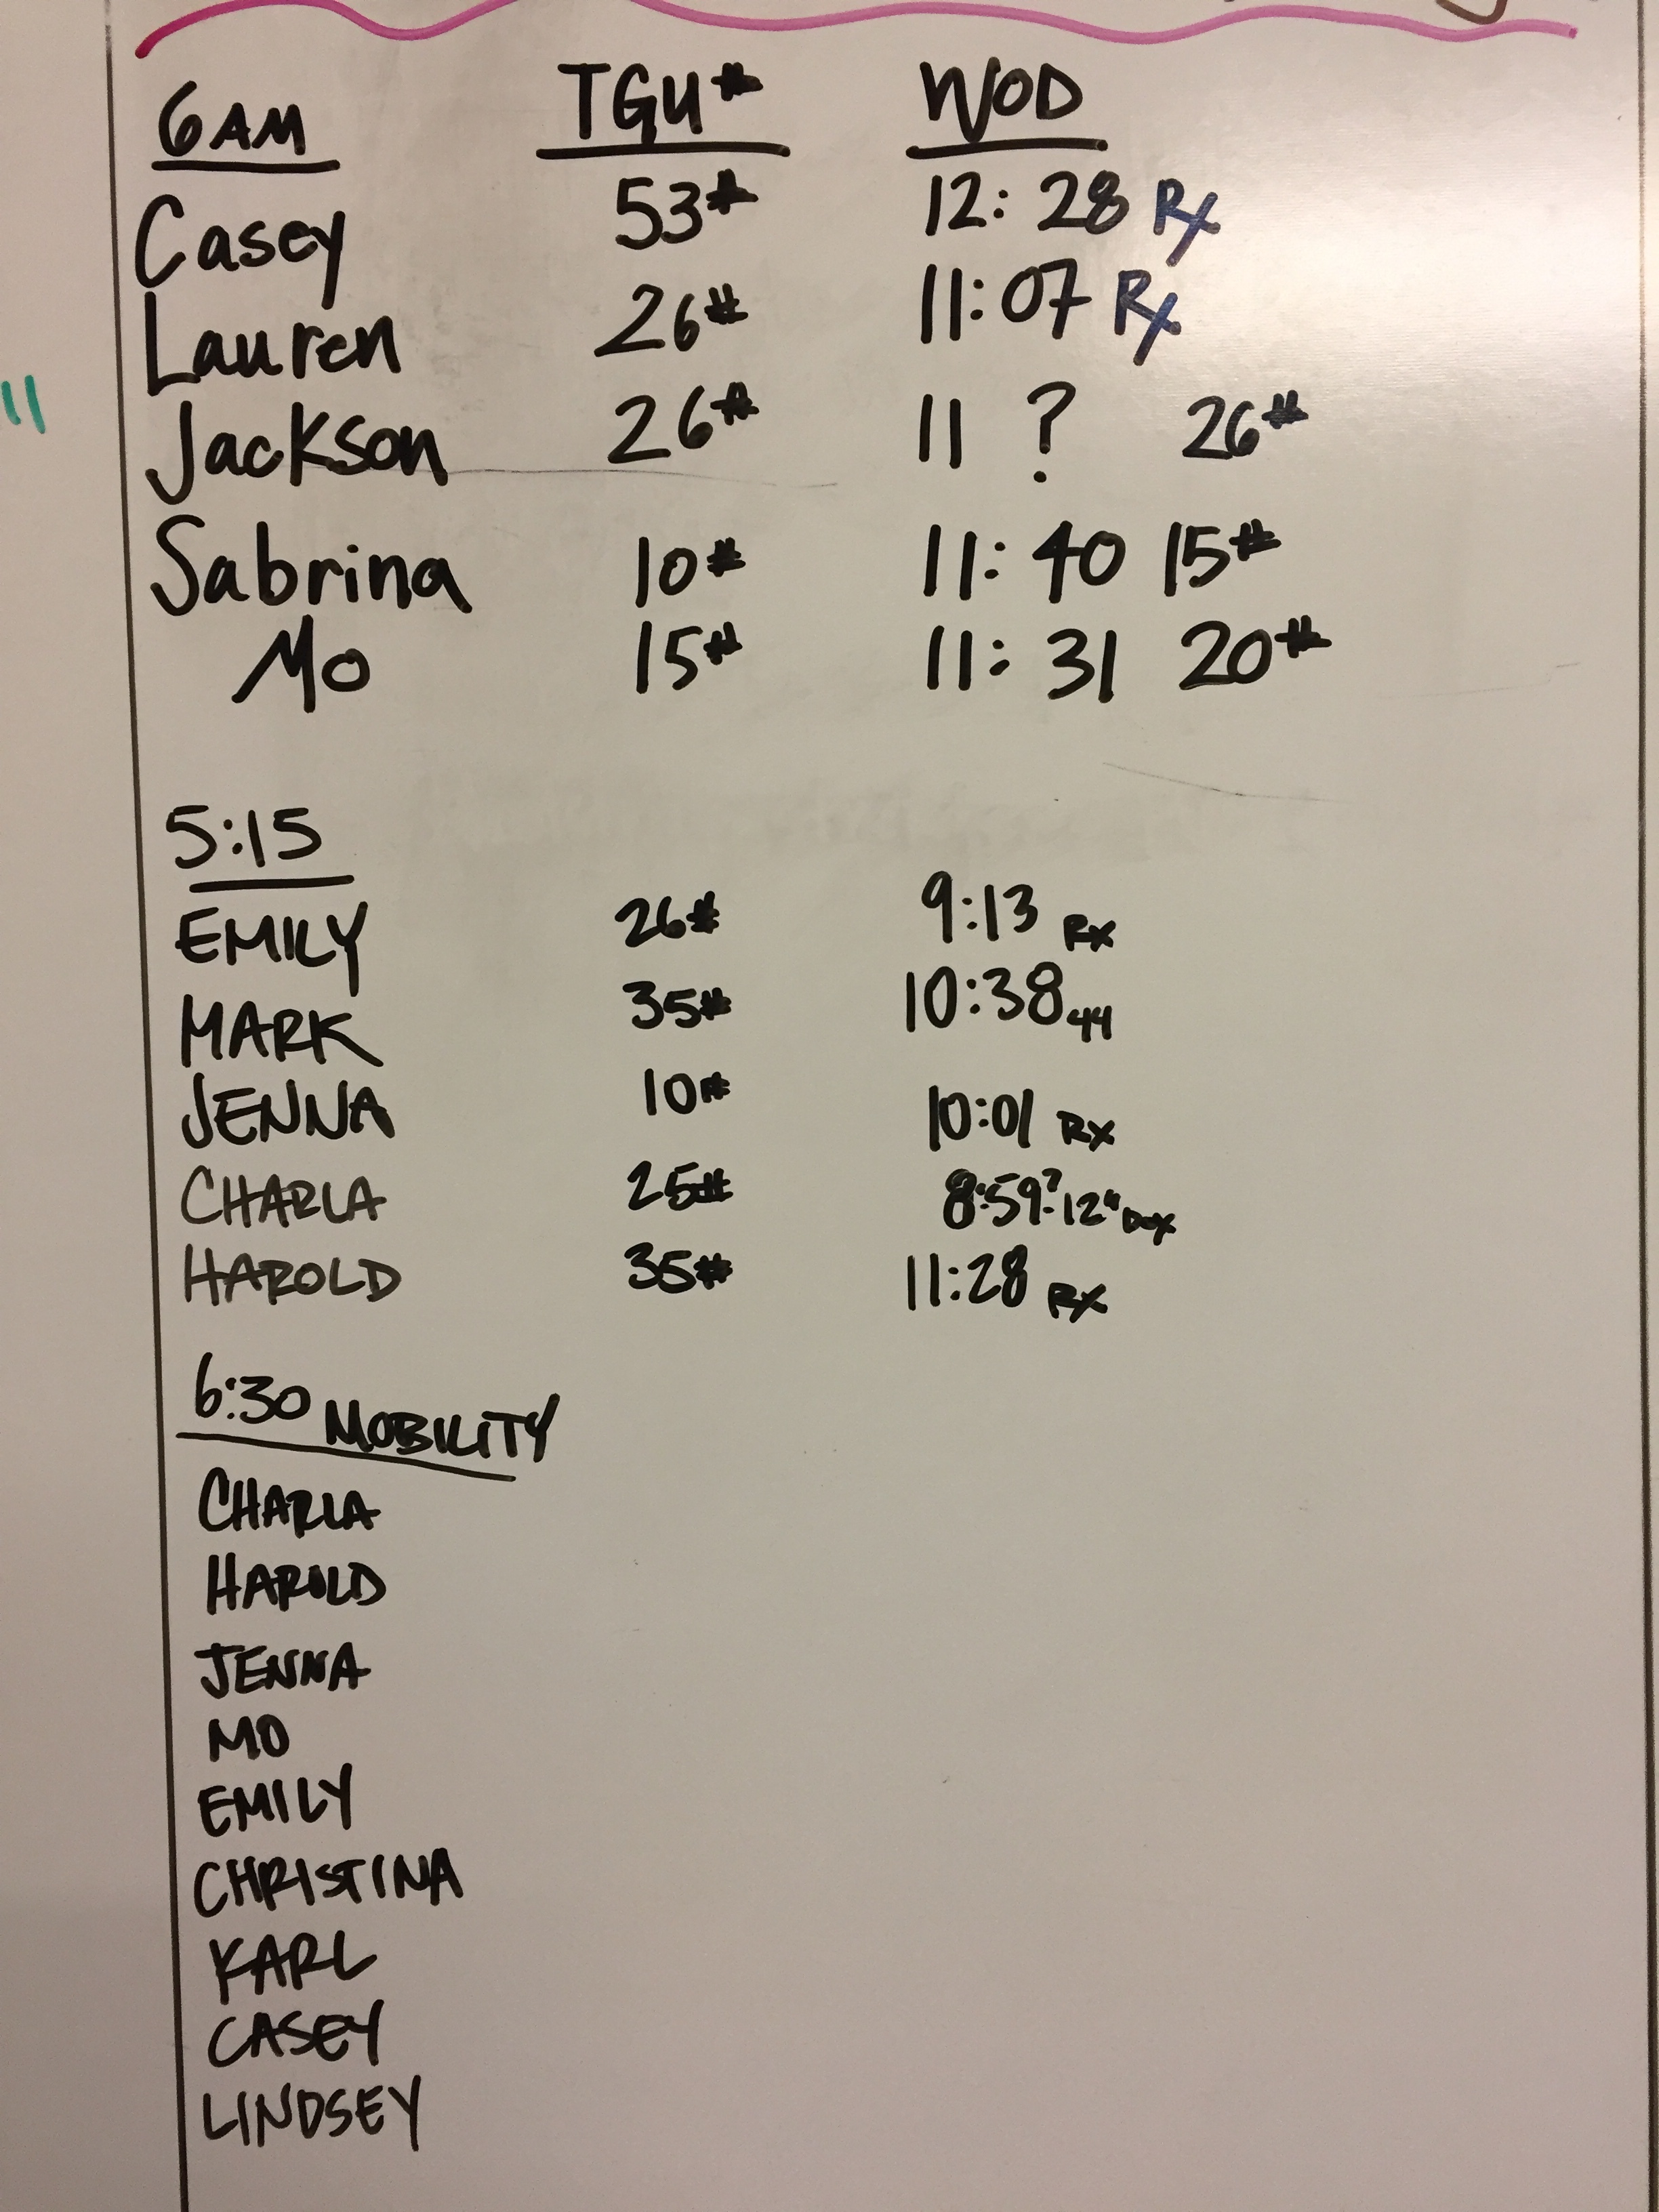 6AM TGU# WOD
Casey 53# 12:28 Rx
Lauren 26# 11:07 Rx
Jackson 26# 11 ? 26#
Sabrina 10# 11:40 15#
Mo 15# 11:31 20#
5:15
EMILY 26# 9:13 RX
MARK 35# 10:38 44
JENNA 10# 10:01 RX
CHARLA 25# 8:59? 12"
HAROLD 35# 11:28 RX
6:30 MOBILITY
CHARLA
HAROLD
JENNA
MO
EMILY
CHRISTINA
KARL
CASEY
LINDSEY